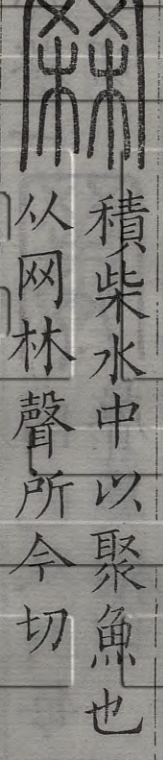 罧
積柴水中以聚魚也
从网林聲所今切